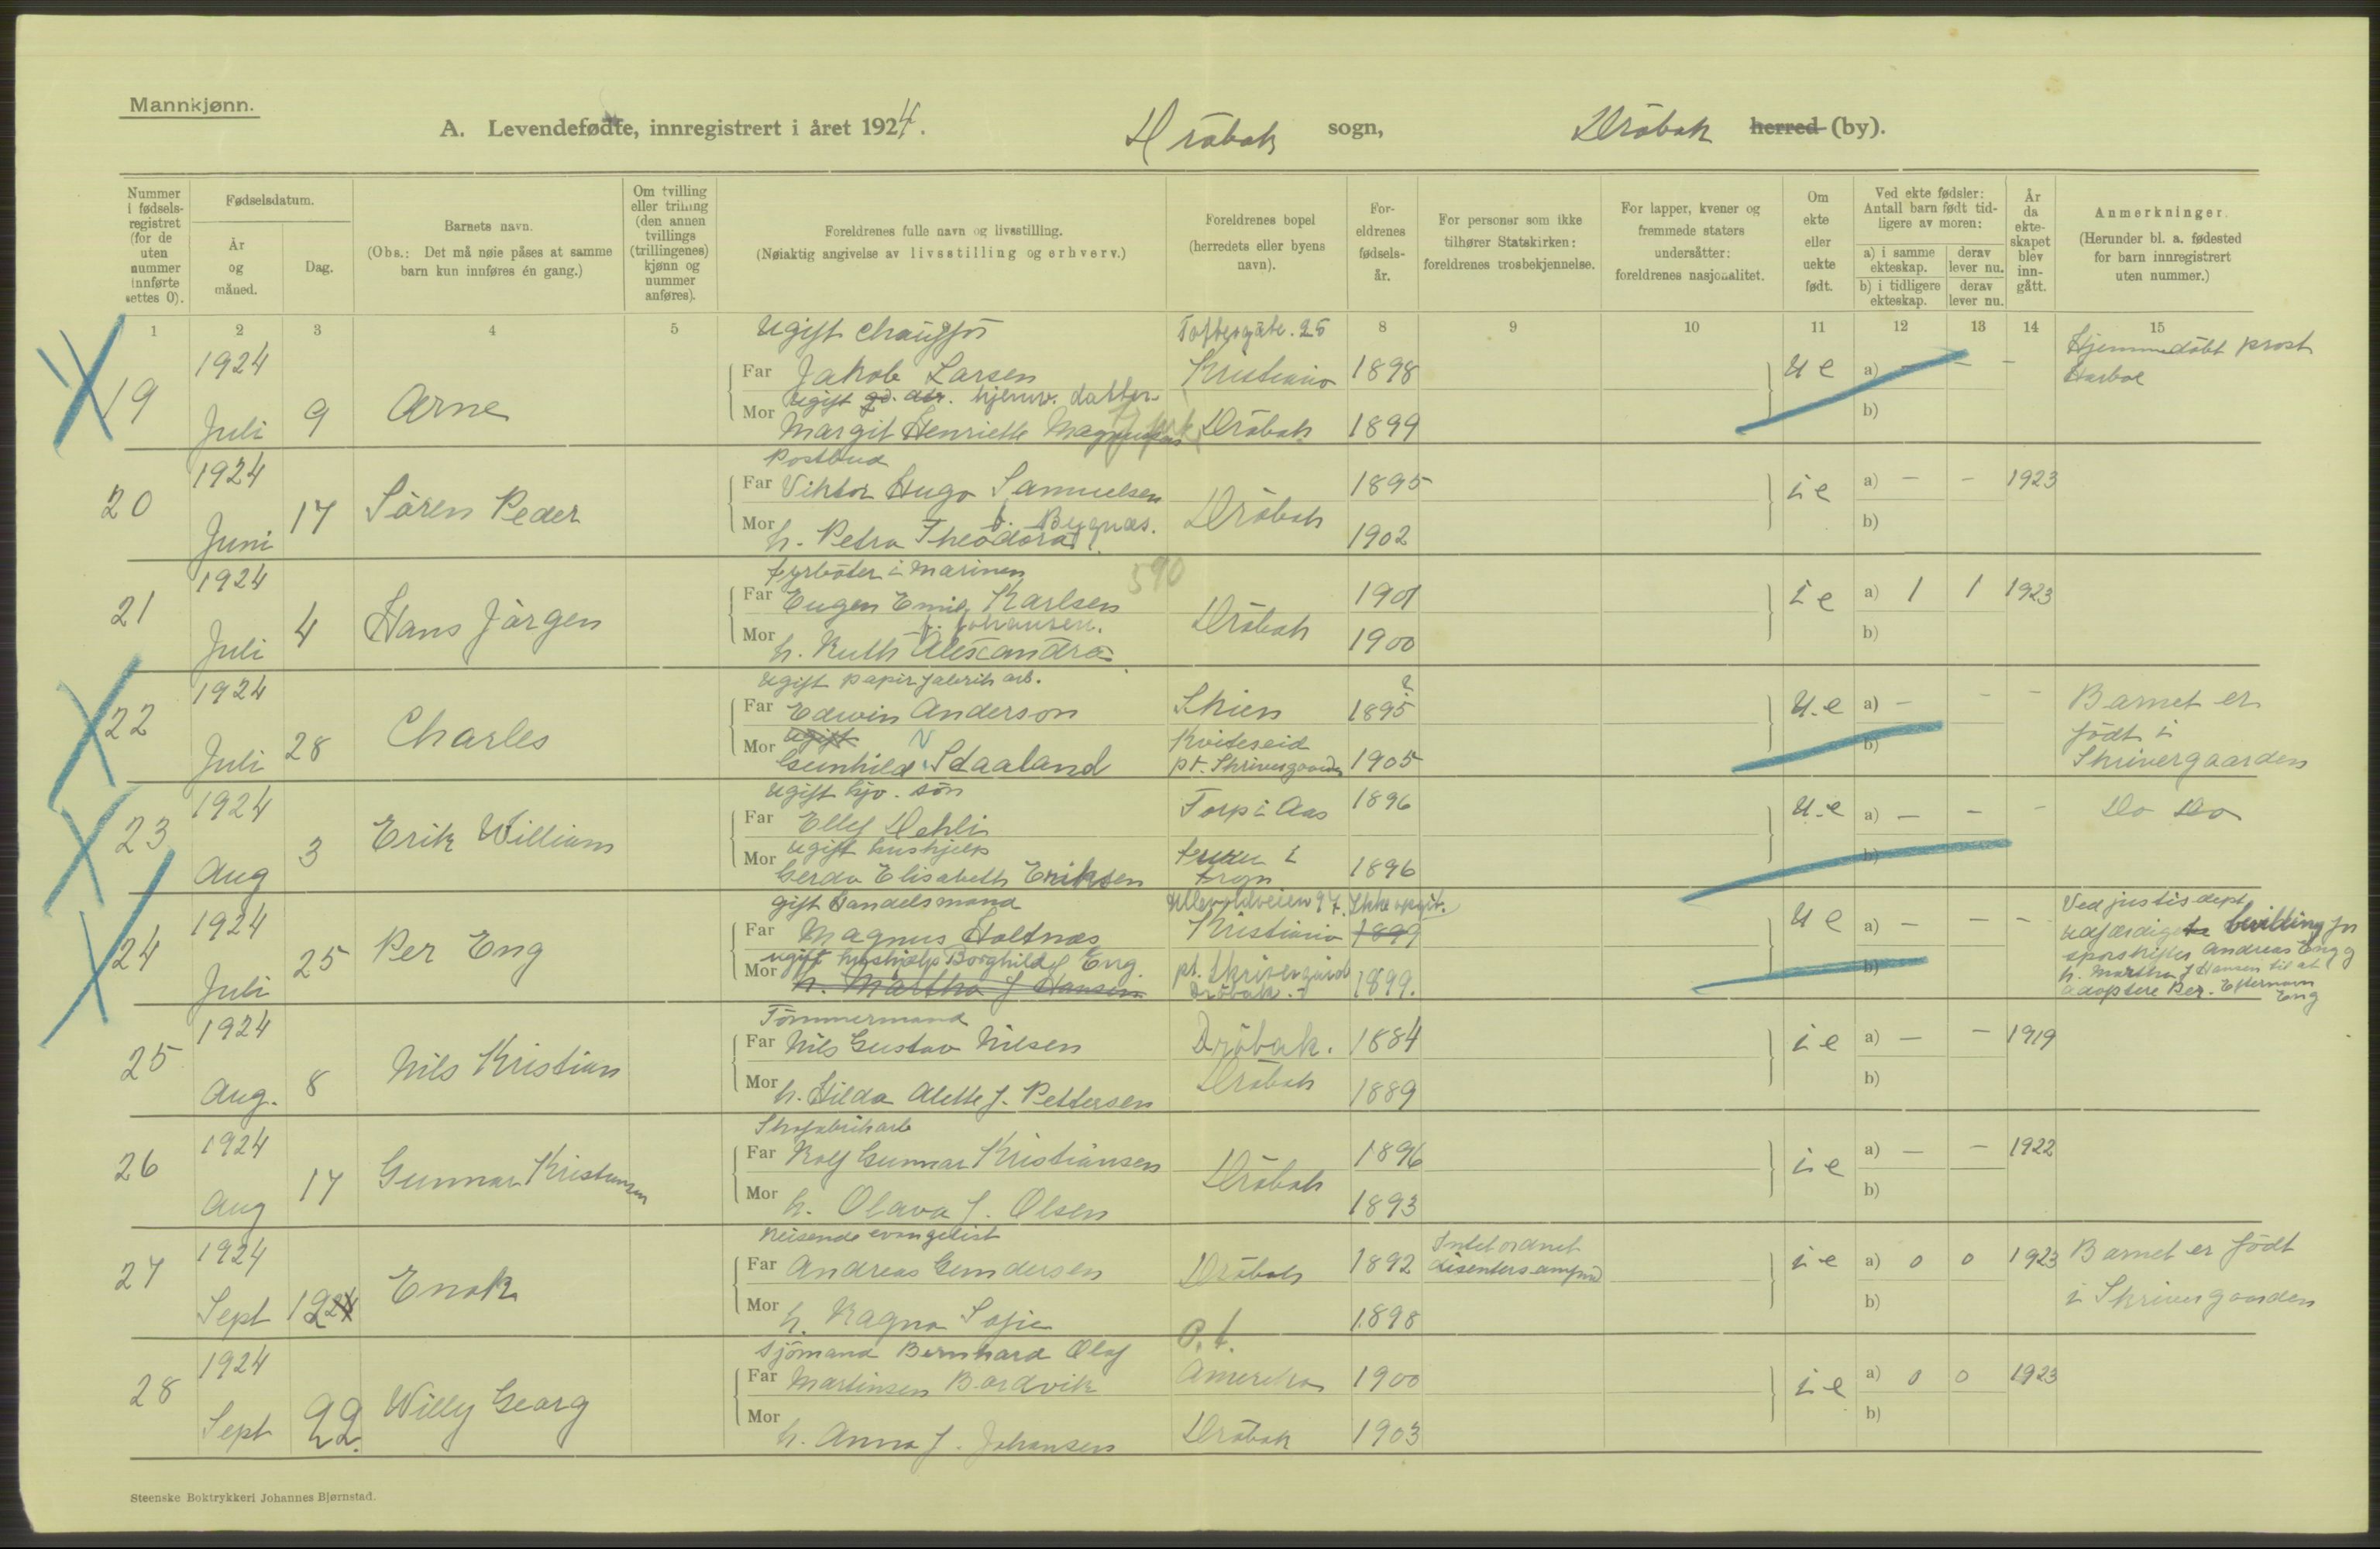 Mannkjønn.
A. Levendefødte, innregistrert i året 1924. Dröbak sogn, Dröbak herred (by).
Nummer i fødselsregistret (for de uten nummer innførte settes 0).
Fødselsdatum.
År og måned.
Dag.
Barnets navn.
(Obs.: Det må nøie påses at samme barn kun innføres én gang.)
Om tvilling eller trilling (den annen tvillings (trillingenes) kjønn og nummer anføres).
Foreldrenes fulle navn og livsstilling.
(Nøiaktig angivelse av livsstilling og erhverv.)
Foreldrenes bopel (herredets eller byens navn).
Foreldrenes fødselsår.
For personer som ikke tilhører Statskirken: foreldrenes trosbekjennelse.
For lapper, kvener og fremmede staters undersåtter: foreldrenes nasjonalitet.
Om ekte eller uekte født.
Ved ekte fødsler: Antall barn født tidligere av moren:
a) i samme ekteskap. derav lever nu.
b) i tidligere ekteskap. derav lever nu.
År da ekteskapet blev inngått.
Anmerkninger.
(Herunder bl. a. fødested for barn innregistrert uten nummer.)
1 2 3 4 5 8 9 10 11 12 13 14 15
Ugift chauffør Toftesgate. 25
19 1924 Juli 9 Arne
Far Jakob Larsen Kristiania 1898 u e a) — — —
Hjemmedöbt prost
Ugift hjemv. datter
Mor Margit Henriette Dröbak 1899 b)
Postbud
20 1924 Juni 17 Sören Peder
Far Viktor Hugo Samuelsen Dröbak 1895 i e a) — — 1923
f. Bygnæs.
Mor h. Petra Theodora 1902 b)
fyrböter i marinen 590
21 1924 Juli 4 Hans Jörgen
Far Eugen Emil Karlsen Dröbak 1901 i e a) 1 1 1923
f. Johansen.
Mor h. Ruth Alexandra 1900 b)
Ugift papirfabrik arb.
22 1924 Juli 28 Charles
Far Edwin Anderson Skien 1895 ? U.e a) — — —
Barnet er
födt i
Skrivergaarden
Ugift Kviteseid
Mor Gunhild Staaland pt. Skrivergaarden 1905 b)
Ugift . sön
23 1924 Aug 3 Erik William
Far Ellef Dehli Torp i Aas 1896 U.e a) — — — Do Do
Ugift hushjelp
Mor Gerda Elisabeth Eriksen Frogn 1896 b)
gift Handelsmand Ullevoldveien 97. Ikke opgit.
24 1924 Juli 25 Per Eng
Far Magnus Holtnæs Kristiania 1899 U e a) — — —
Ved justis dept
bevilling for
Andreas Eng og
h. Martha f Hansen til at
adoptere Per. Efternavn
Eng
ugift hushjelp Borghild Eng. pt. Skrivergård
Mor h. Martha f Hansen Dröbak. 1899. b)
Tömmermand
25 1924 Aug. 8 Nils Kristian
Far Nils Gustav Nilsen Dröbak. 1884 i e a) — — 1919
Mor h. Hilda Alette f. Pettersen Dröbak 1889 b)
Skofabrikarb
26 1924 Aug 17 Gunnar Kristiansen
Far Rolf Gunnar Kristiansen Dröbak 1896 i e a) — — 1922
Mor h. Olava f. Olsen 1893 b)
Reisende evangelist
27 1924 Sept 12 Enok
Far Andreas Gundersen Dröbak 1892 Intet ordnet i e a) 0 0 1923
Barnet er födt
i Skrivergaarden
Mor h. Ragna Sofie 1898 b)
Sjömand Bernhard Olaf p.t.
28 1924 Sept 22. Willy Georg
Far Martinsen Bordvik Amerika 1900 i e a) 0 0 1923
Mor h. Anna f. Johansen Dröbak 1903 b)
Steenske Boktrykkeri Johannes Bjørnstad.